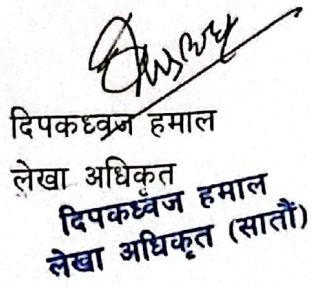 दिपकध्वज हमाल
लेखा अधिकृत
दिपकध्वज हमाल
लेखा अधिकृत (सातौं)